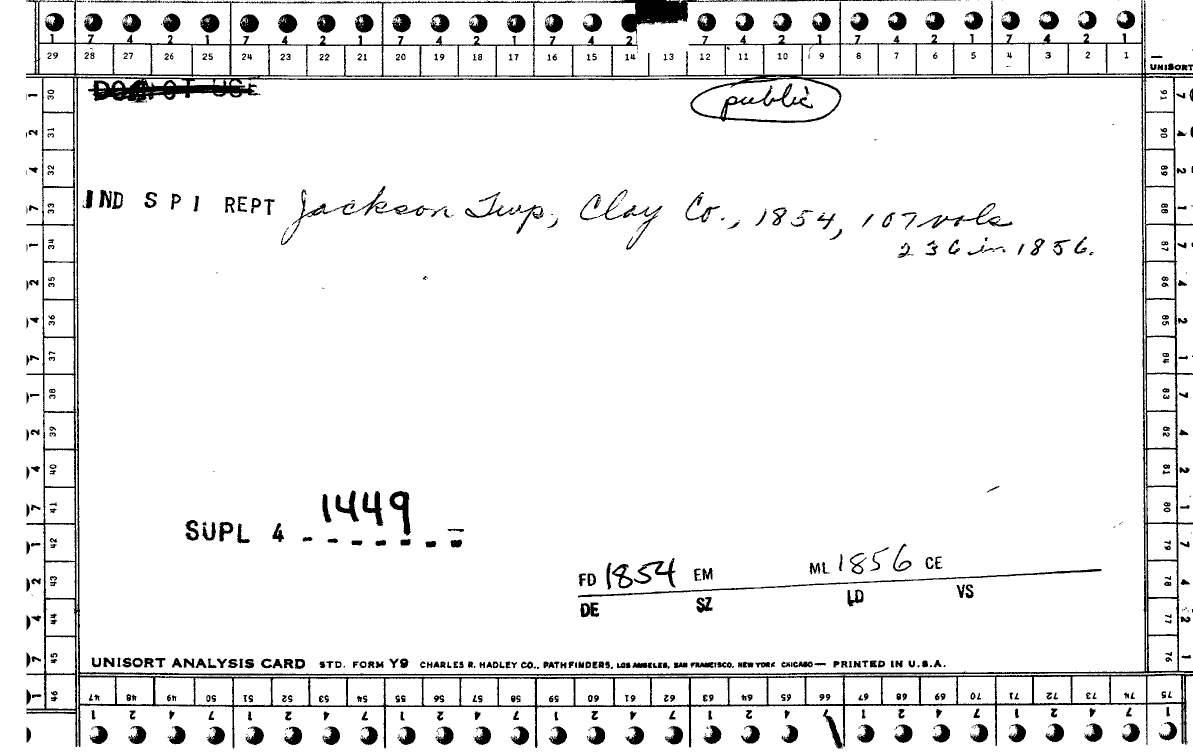 7 4 2 1 7 4 2 1 7 4 2 1 7 4 2 7 4 2 1 7 4 2 1 7 4 2 1
29 28 27 26 25 24 23 22 21 20 19 18 17 16 15 14 13 12 11 10 9 8 7 6 5 4 3 2 1
UNISORT
DO NOT USE
public
IND S P I REPT Jackson Twp, Clay Co., 1854, 107 vols
236 in 1856.
SUPL 4 1449
FD 1854 EM ML 1856 CE
DE SZ LD VS
UNISORT ANALYSIS CARD STD. FORM Y9 CHARLES R. HADLEY CO., PATHFINDERS, LOS ANGELES, SAN FRANCISCO, NEW YORK CHICAGO — PRINTED IN U.S.A.
30 31 32 33 34 35 36 37 38 39 40 41 42 43 44 45 46
91 90 89 88 87 86 85 84 83 82 81 80 79 78 77 76
47 48 49 50 51 52 53 54 55 56 57 58 59 60 61 62 63 64 65 66 67 68 69 70 71 72 73 74 75
1 2 4 7 1 2 4 7 1 2 4 7 1 2 4 7 1 2 4 7 1 2 4 7 1 2 4 7 1